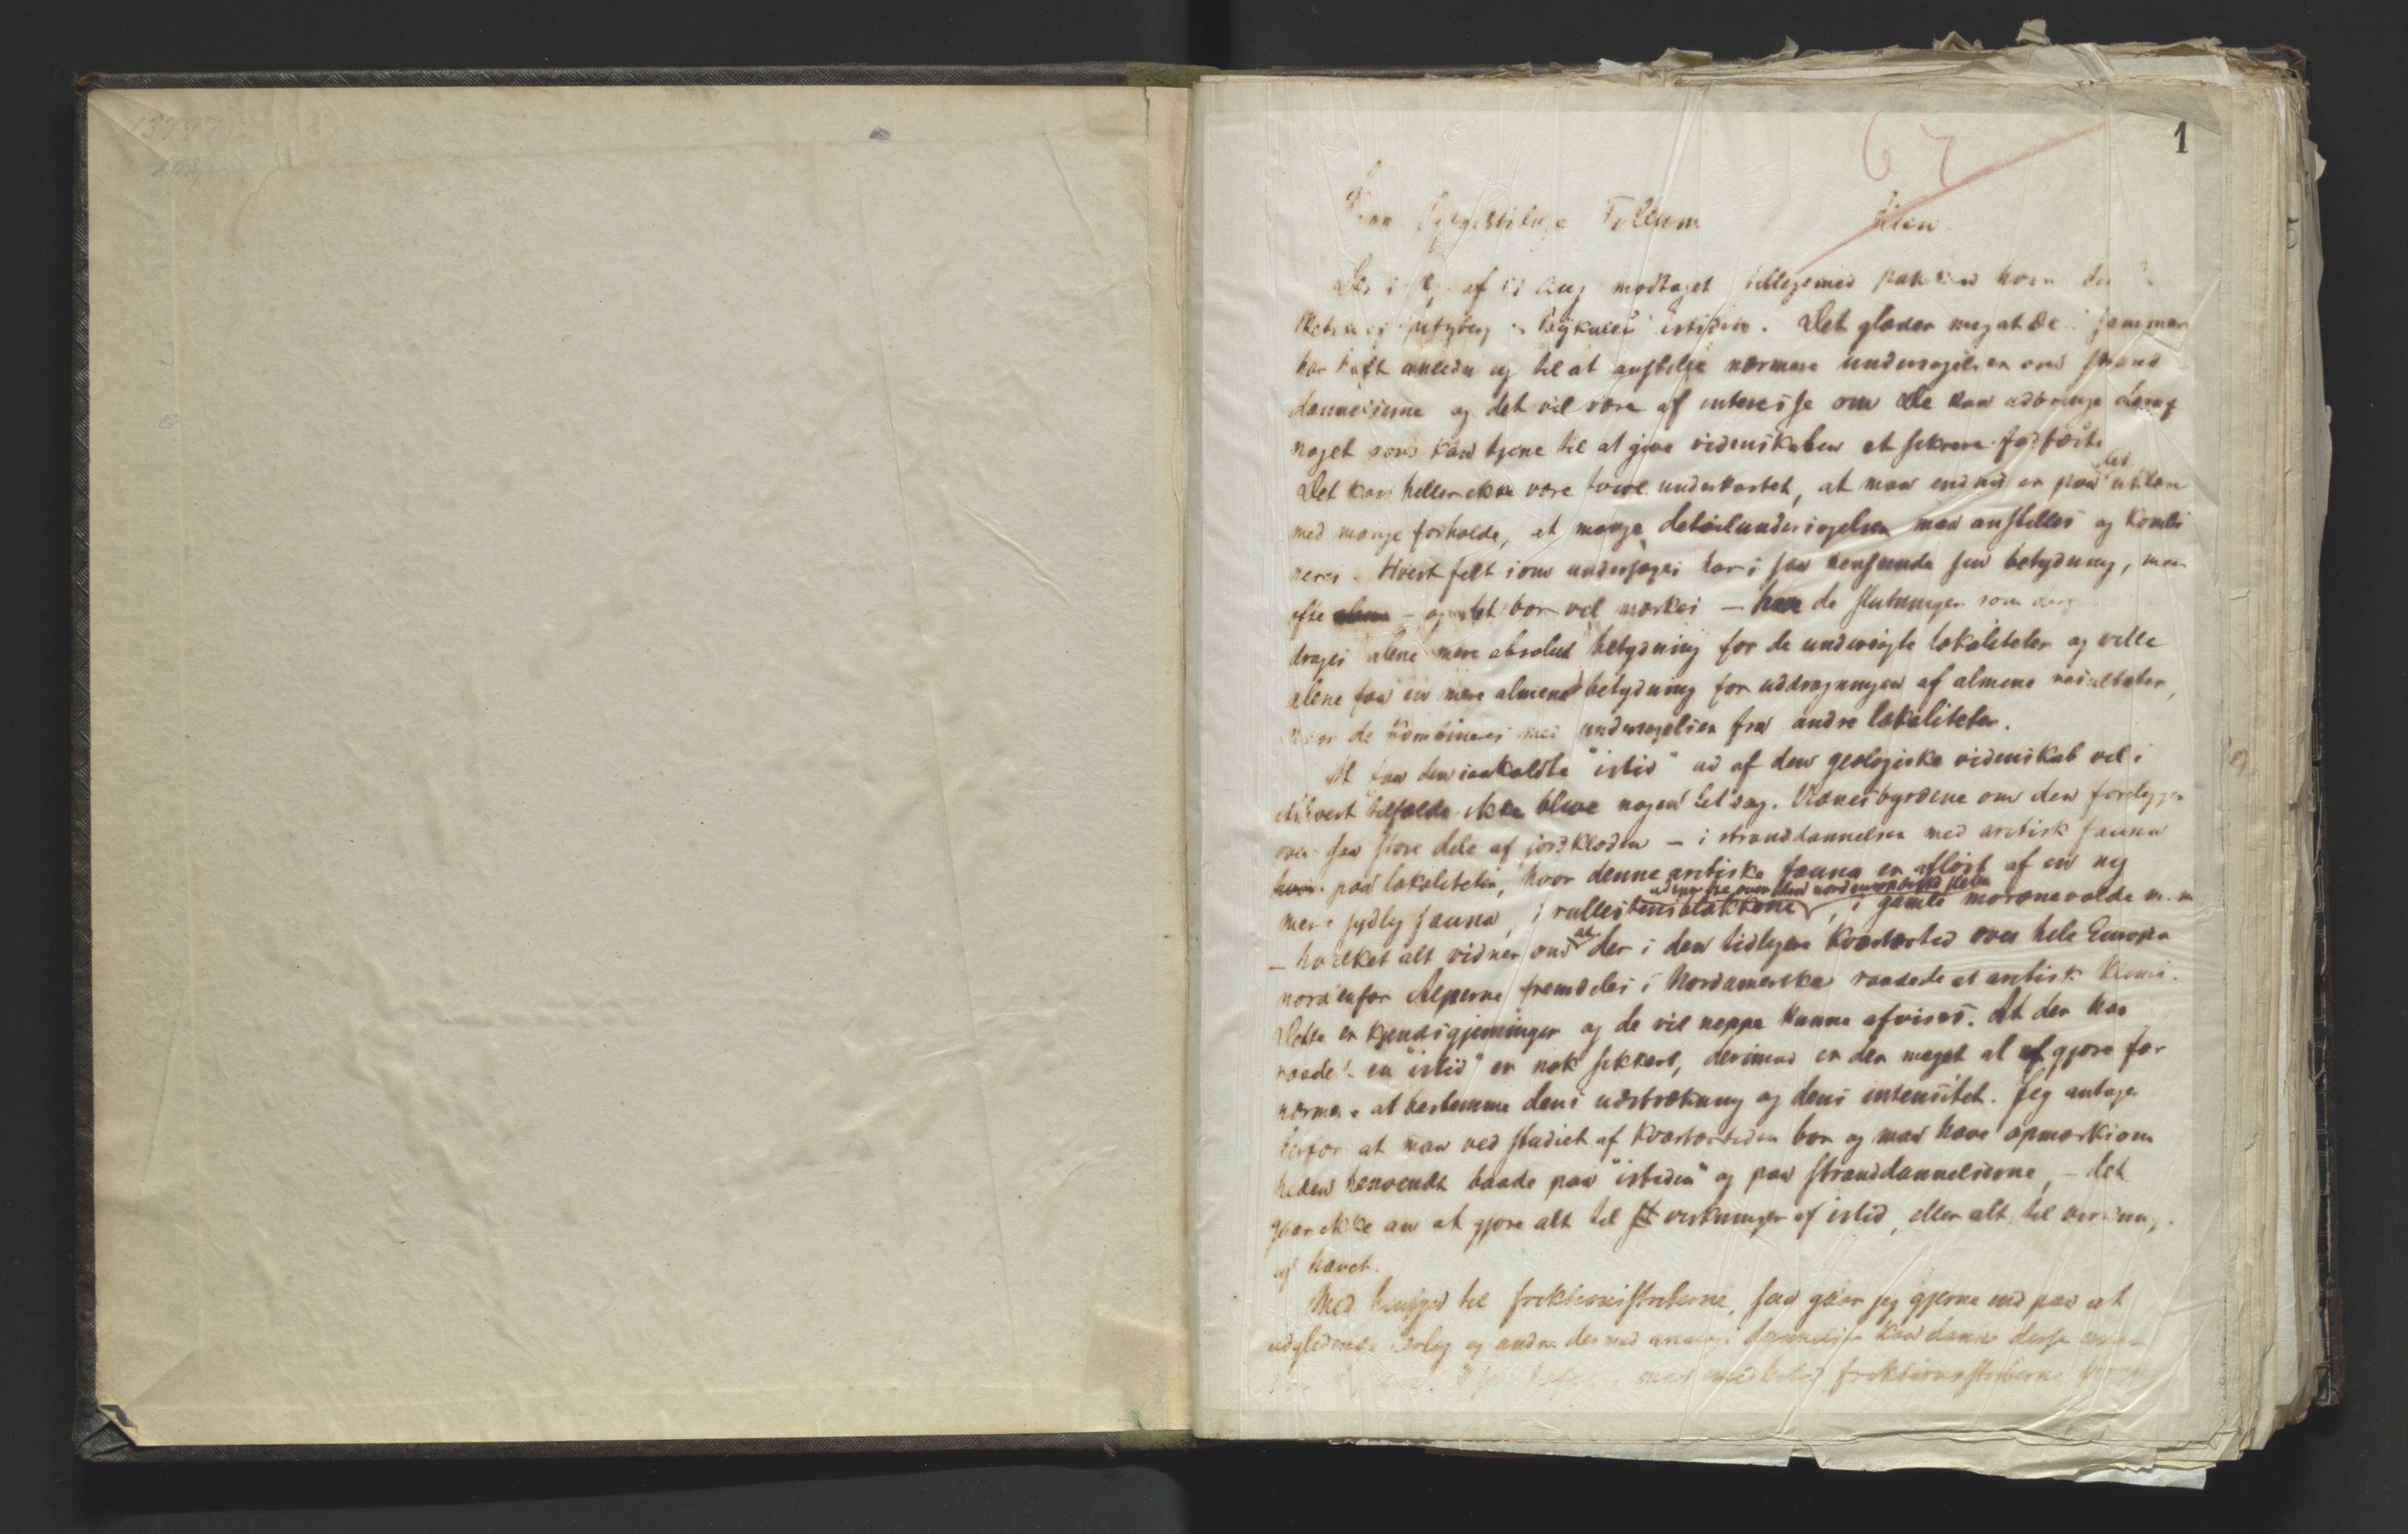 13987
1
67
Follum
af 13 Aug modtaget tillegemed pakken
istiden. Det glæder meg at De i sommer
har havt anledn og til at anstille nærmere undersøgelser over strand
dannelserne og det vil være af interesse om De kan udbringe deraf
noget som kan tjene til at give videnskaben et sikrere fodfæste
Det kan heller ikke være tvivl underkastet, at man endnu er paa det uklare
med mange forholde, at mange detailundersøgelser maa anstilles og kombi
neres. Hvert felt som undersøges har i saa henseende sin betydning, men
ofte – og det bør vel mærkes – have de slutninger som
drages alene mere absolut betydning for de undersøgte lokaliteter og ville
alene faa en mere almene betydning for uddragningen af almene resultater,
naar de kombineres med undersøgelser fra andre lokaliteter.
At faa den saakaldte "istid" ud af den geologiske videnskab vil i
ethvert tilfælde ikke blive nogen let sag. Vidnesbyrdene om den foreligger
over saa store dele af jordkloden – i stranddannelser med arctisk fauna
hvor paa lokaliteter, hvor denne arctiske fauna er afløst af en ny
mere sydlig fauna, i rullestensblokkene udover den nordeuropæiske slette, i gamle morænevolde m.m
– hvilket alt vidner om at der i den tidligere kvartærtid over hele Europa
nordenfor Alperne fremdeles i Nordamerika raadede et arctisk klima.
Dette er kjendsgjerninger og de vil neppe kunne afvises. At der har
raadet en "istid" er nok sikkert, derimod er der meget at afgjøre for
nærmere at bestemme dens udstrækning og dens intensitet. Jeg antager
derfor at man ved studiet af kvartærtiden bør og maa have opmærksom
heden henvendt baade paa "istiden" og paa stranddannelserne, – det
gaar ikke an at gjøre alt til virkninger af istid, eller alt til virkning
af havet.
Med hensyn til friktionsstriberne, saa gaar jeg gjerne ind paa at
udglidende og andre dermed kan danne
med friktionsstriberne